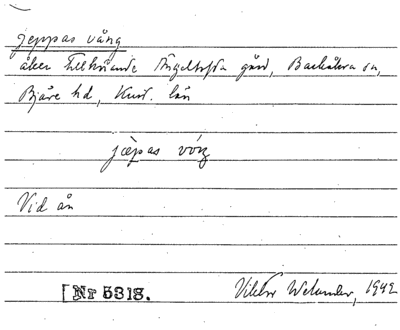 jeppas vång
åker tillhörande Ängeltofta gård, Barkåkra sn,
Bjäre hd, Krist. län
jæpas vóŋ
Vid ån
[Nr 5318.
Viktor Welander, 1942